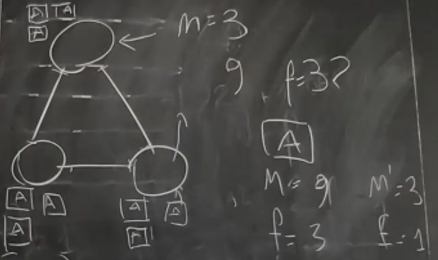 A A A
A
m = 3
9
f = 3?
A
A A
A
A A
A
M = 9 M' = 3
f = 3 f = 1